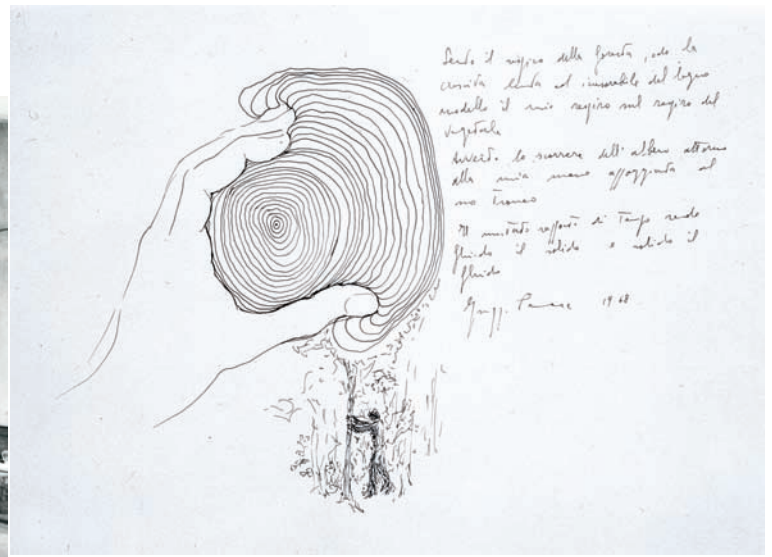 Sento il respiro della foresta, odo la
crescita lenta ed inesorabile del legno
modello il mio respiro sul respiro del
vegetale
Avverto lo scorrere dell'albero attorno
alla mia mano appoggiata al
suo tronco
Il mutato rapporto di Tempo rende
fluido il solido e solido il
fluido
Penone 1968